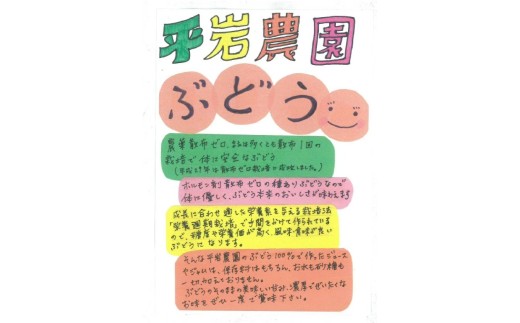 平岩農園
ぶどう
農薬散布ゼロ、または多くとも散布1回の
栽培で体に安全なぶどう
(平成29年は散布ゼロ栽培で成功しました。)
ホルモン剤散布ゼロの種ありぶどうなので
体に優しく、ぶどう本来のおいしさが味わえます
成長に合わせ適した栄養素を与える栽培法
「栄養週期栽培」で手間をかけて作られている
ので、糖度や栄養価が高く、風味・食味が良い
ぶどうになります。
そんな平岩農園のぶどう100%で作ったジュース
やジャムは、保存料はもちろん、お水もお砂糖も
一切加えておりません。
ぶどうのそのままの美味しい甘み、濃厚でぜいたくな
お味をぜひ一度ご賞味下さい。